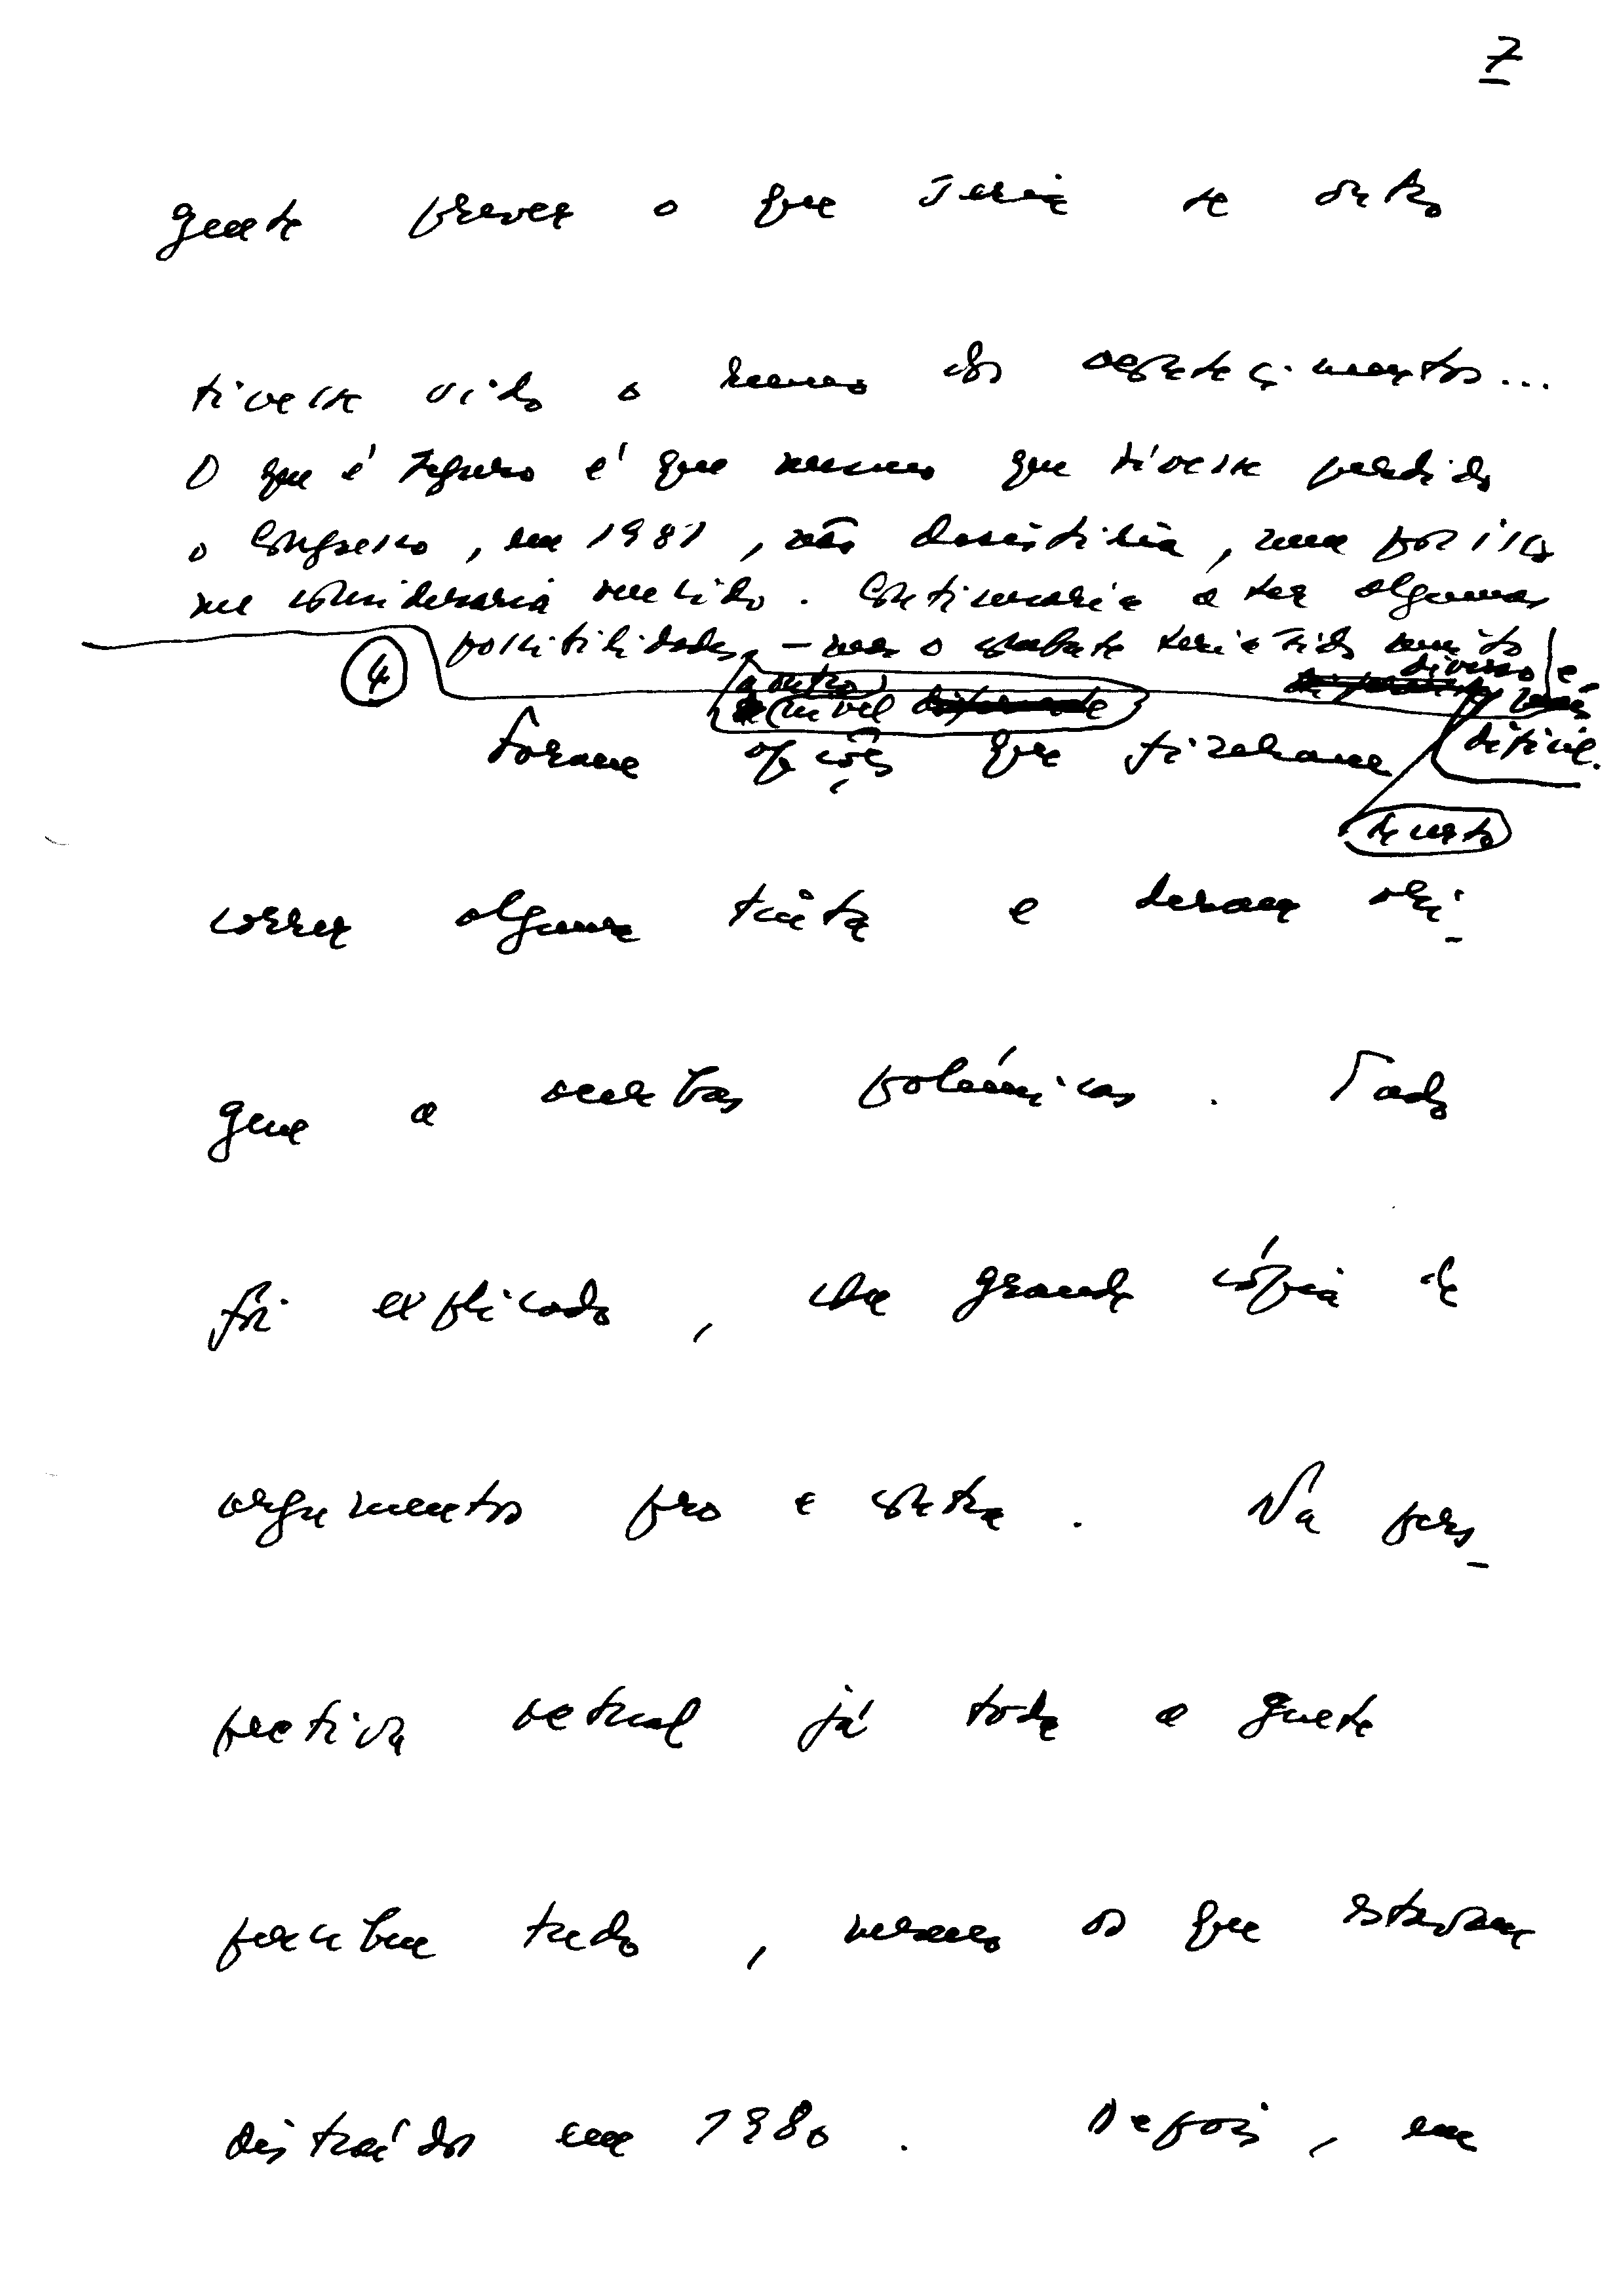 7
gente prever o que seria se outro
tivesse sido o rumo dos acontecimentos...
O que é seguro é que mesmo que tivesse perdido
o Congresso, em 1981, não desistiria, nem por isso
me consideraria vencido. Continuaria a ter algumas
possibilidades, – mas o combate teria sido muito
a outro
diverso e
4
nível diferente
mais
Foram opções que fizeram
difícil.
de certo
correr alguma tinta e deram ori-
gem a acerbas polémicas. Tudo
foi explicado, com grande cópia de
argumentos pro e contra. Na pers-
pectiva actual já toda a gente
percebeu tudo, mesmo os que estavam
distraídos em 1980. Depois, em